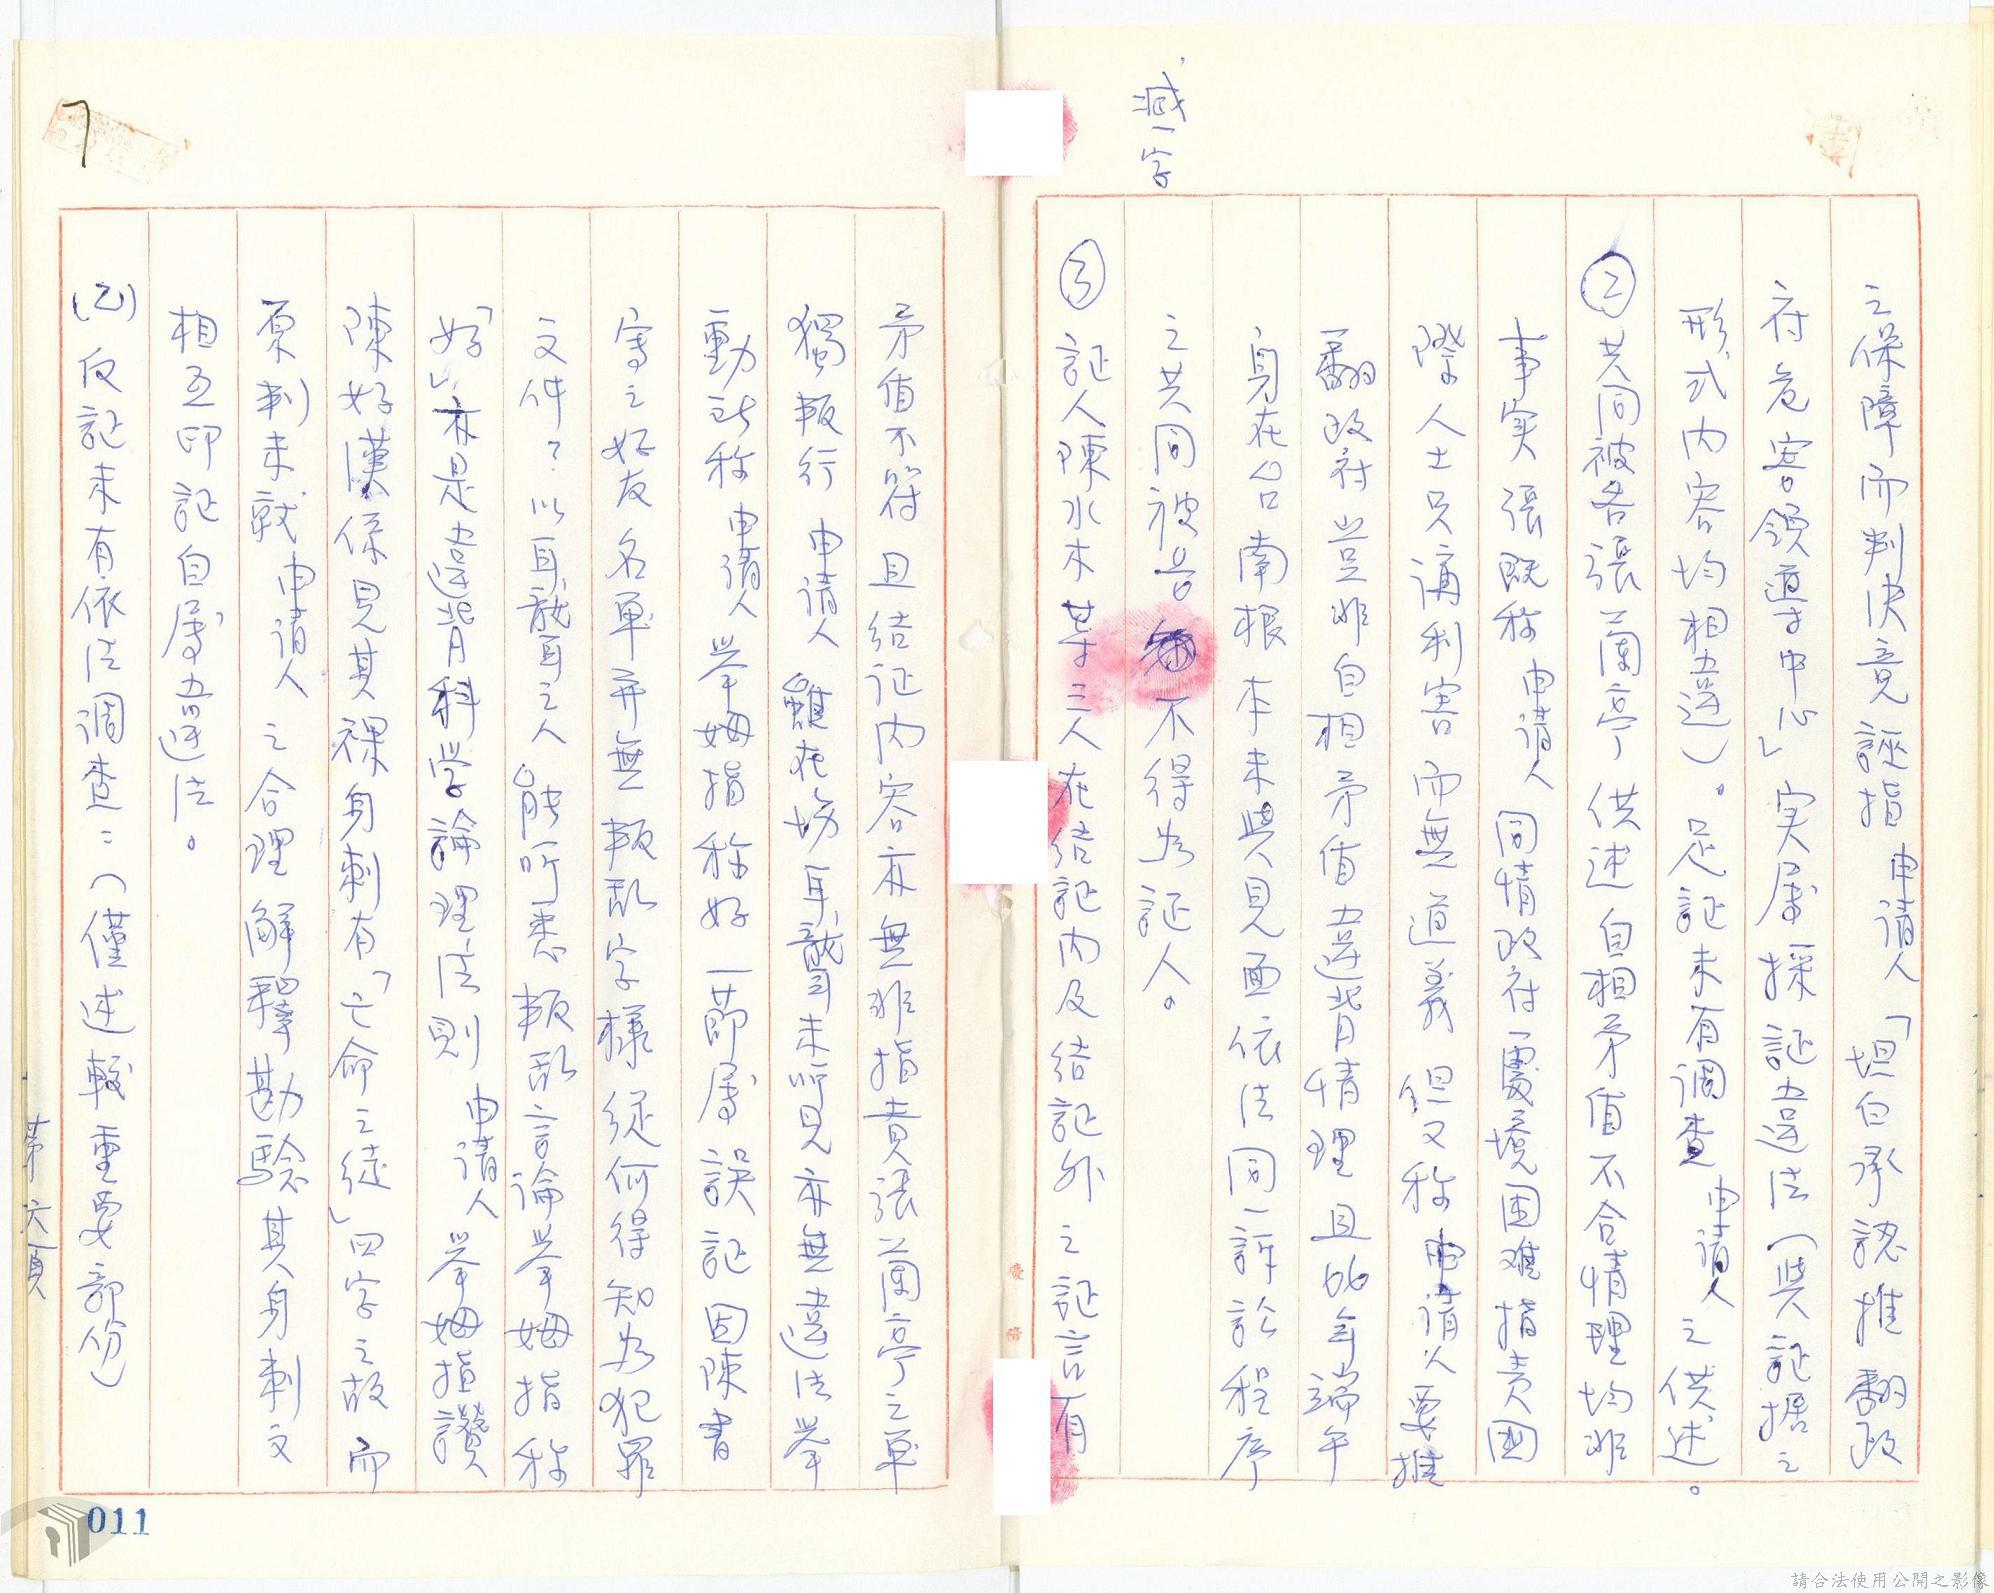 减一字
之保障而判決竟誣指 申請人「坦白承認推翻政
府危害領導中心」实屬採証違法（與証据之
形式內容均相違）。足証未有調查 申請人之供述。
②共同被告張蘭亭供述自相矛盾不合情理均非
事实張既称 申請人同情政府處境困难指责国
際人士只講利害而無道義但又称申請人要推
翻政府豈非自相矛盾違背情理且66年端午
身在台南根本未與見面依法同一訴訟程序
之共同被告不得为証人。
③証人陳水木等三人在結証內及結証外之証言有
矛盾不符且结证内容亦無非指责張蘭亭之單
獨叛行 申請人雖在场耳聾未听見亦無違法舉
動至称 申請人舉姆指称好一節屬誤証因陳書
寫之好友名單并無叛乱字樣從何得知为犯罪
文件？以耳聾之人能听悉叛乱言論舉姆指称
「好」亦是違背科学論理法則 申請人舉姆指讚
陳好漢係見其裸身刺有「亡命之徒」四字之故而
原判未就 申請人之合理解釋勘驗其身刺文
相互印証自屬違法。
(乙)反証未有依法調查：（僅述較重要部份）
第六頁
7
011
請合法使用公開之影像